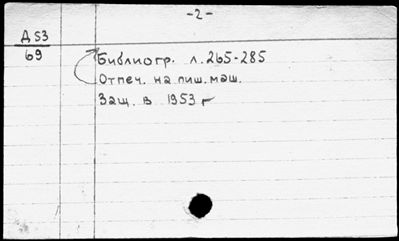 -2-
Д53
69
Библиогр. л.265-285
Отпеч. на пиш.маш.
Защ. в 1953 г